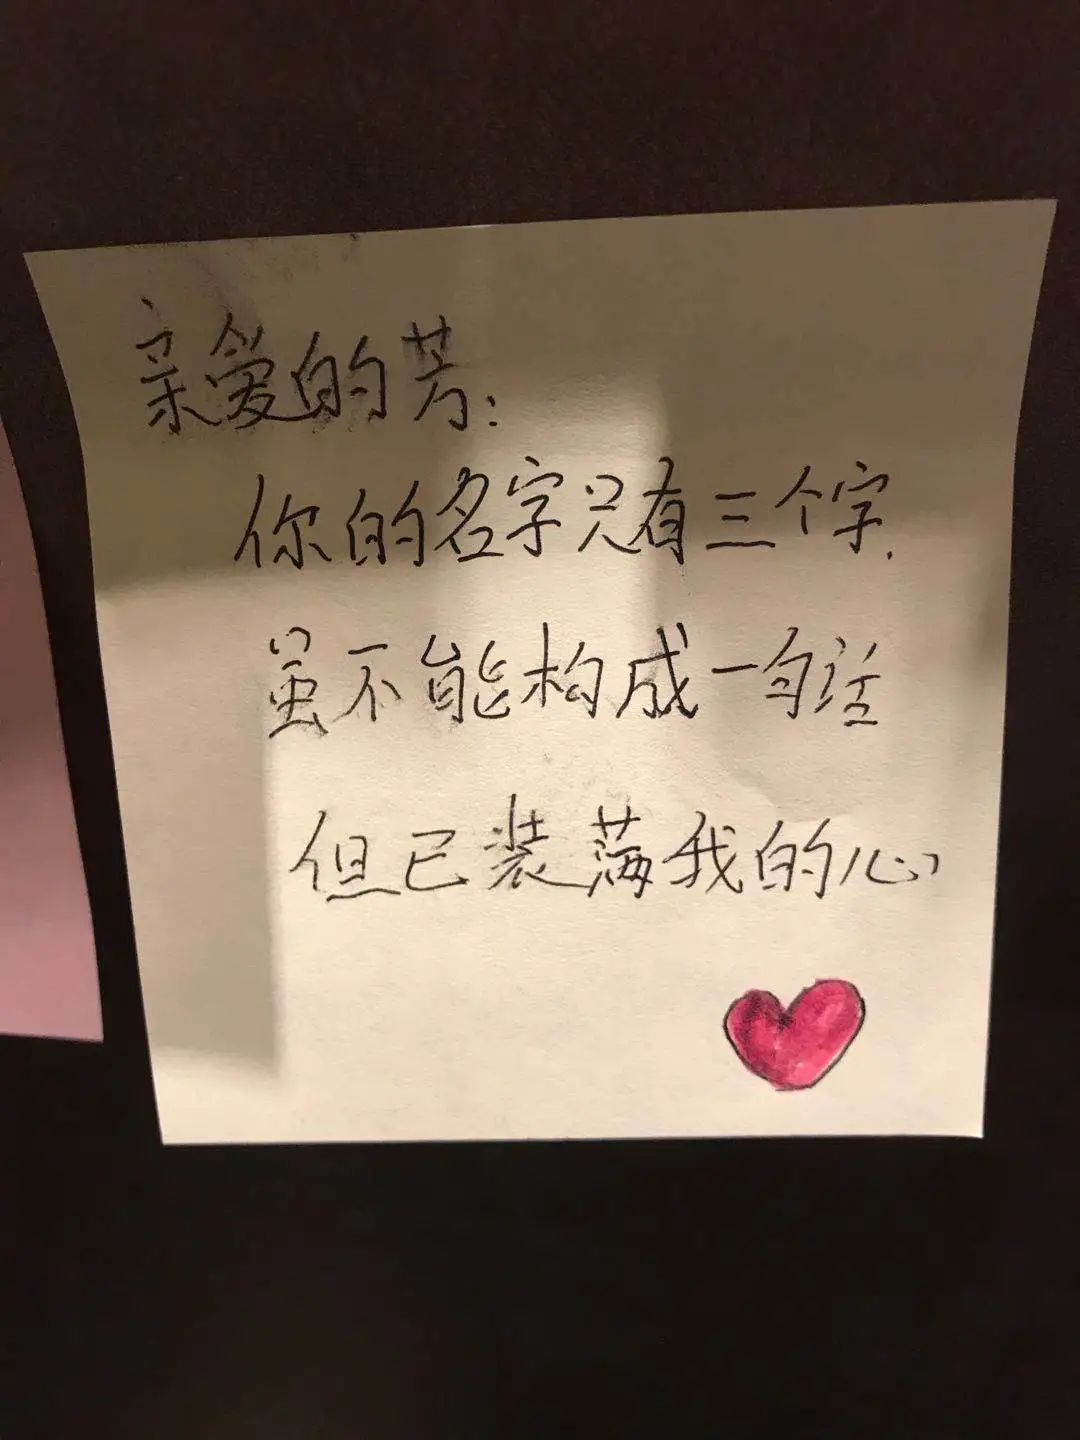 亲爱的芳:
你的名字只有三个字.
虽不能构成一句话
但已装满我的心